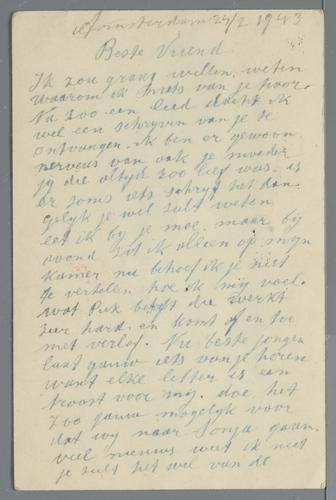 Amsterdam 24/2 1943
Beste Vriend
Ik zou graag willen weten
waarom ik niets van je hoor.
Na zoo een leed dacht ik
wel een schryven van je te
ontvangen. ik ben er gewoon
nerveus van ook je moeder
jy die altyd zoo lief was. is
er soms iets schryf het dan.
je wil zult weten
eet ik by je moe. maar by
avond zit ik alleen op myn
kamer nu behoef ik je niet
te vertelen hoe ik my voel.
wat Puk die werkt
zeer hard. en komt af en toe
met verlof. Nu beste jongen
laat gauw iets van je horen
want elke letter is een
troost voor my. doe het
zoo gauw mogelyk voor
dat wy naar Sonja gaan.
veel nieuws weet ik niet
je zult het wel van de